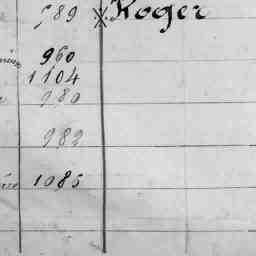 989 Koger
960
1104
980
982
1085